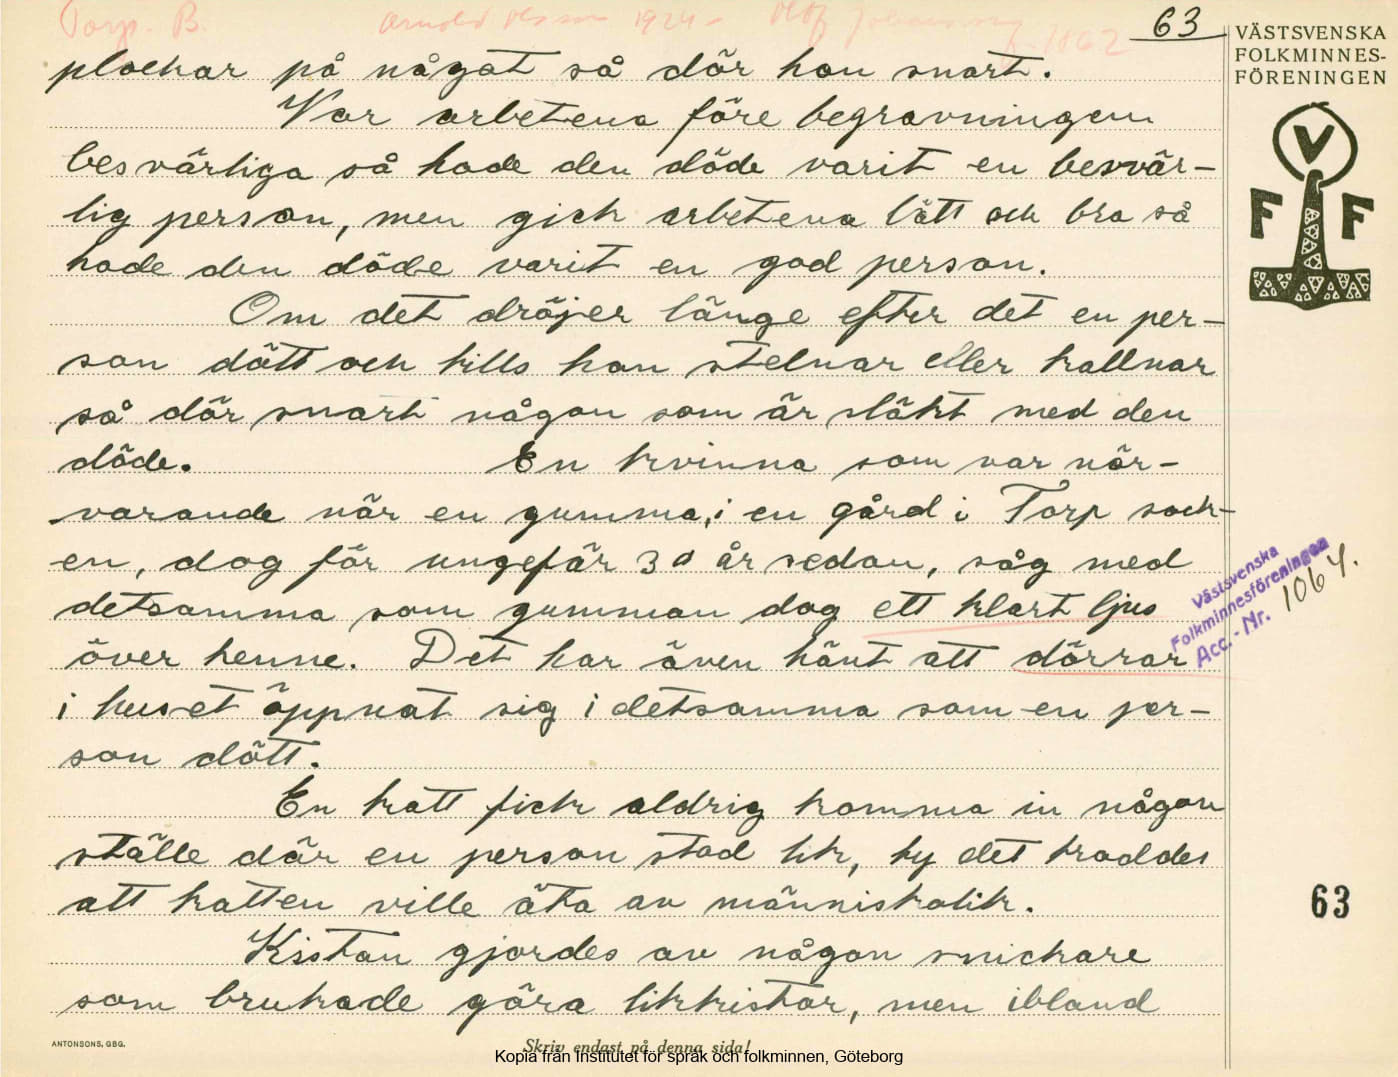 Torp. B. Arnold Olsson 1924 - Olof Johansson 63
f. 1862
VÄSTSVENSKA
FOLKMINNES-
FÖRENINGEN
V
F F
plockar på något så dör hon snart.
Var arbetena före begravningen
besvärliga så hade den döde varit en besvär-
lig person, men gick arbetena lätt och bra så
hade den döde varit en god person.
Om det dröjer länge efter det en per-
son dött och tills han stelnar eller kallnar
så dör snart någon som är släkt med den
döde. En kvinna som var när-
varande när en gumma, i en gård i Torp sock-
en, dog för ungefär 30 år sedan, såg med
detsamma som gumman dog ett klart ljus
över henne. Det har även hänt att dörrar
i huset öppnat sig i detsamma som en per-
son dött.
En katt fick aldrig komma in någon
ställe där en person stod lik, ty det troddes
att katten ville äta av människolik.
Kistan gjordes av någon snickare
som brukade göra likkistor, men ibland
Västsvenska
Folkminnesföreningen
Acc. - Nr. 1064.
63
ANTONSONS, GBG.
Skriv endast på denna sida!
Kopia från Institutet för språk och folkminnen, Göteborg